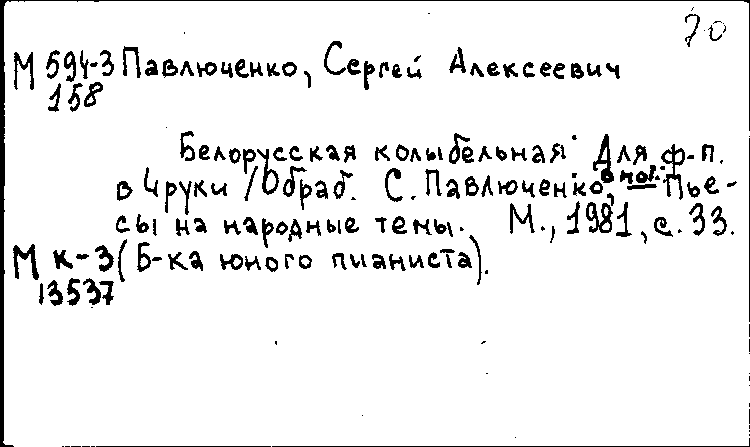 70
М 594-3 Павлюченко, Сергей Алексеевич
158
Белорусская колыбельная: Для ф-п.
в 4 руки / Обраб. С. Павлюченко, в кн.: Пье-
сы на народные темы. М., 1981, с. 33.
М к-3 (Б-ка юного пианиста).
13537